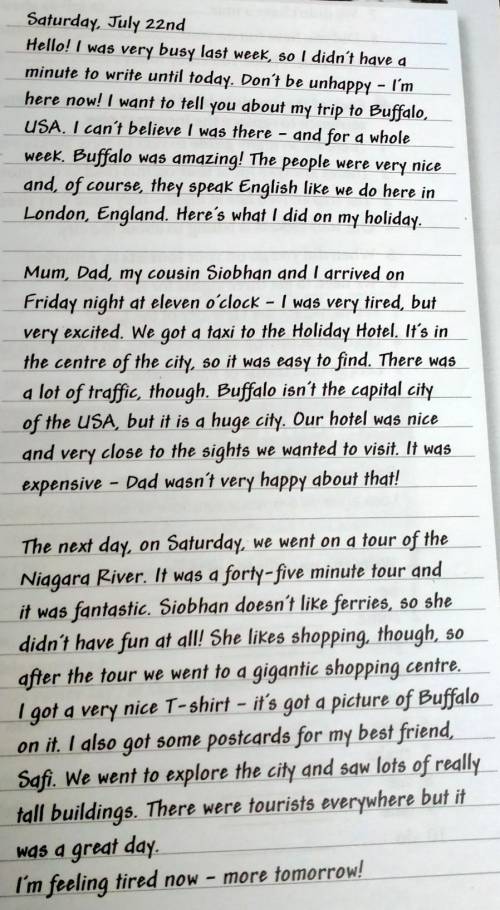 Saturday, July 22nd
Hello! I was very busy last week, so I didn't have a
minute to write until today. Don't be unhappy – I'm
here now! I want to tell you about my trip to Buffalo,
USA. I can't believe I was there – and for a whole
week. Buffalo was amazing! The people were very nice
and, of course, they speak English like we do here in
London, England. Here's what I did on my holiday.
Mum, Dad, my cousin Siobhan and I arrived on
Friday night at eleven o'clock – I was very tired, but
very excited. We got a taxi to the Holiday Hotel. It's in
the centre of the city, so it was easy to find. There was
a lot of traffic, though. Buffalo isn't the capital city
of the USA, but it is a huge city. Our hotel was nice
and very close to the sights we wanted to visit. It was
expensive – Dad wasn't very happy about that!
The next day, on Saturday, we went on a tour of the
Niagara River. It was a forty-five minute tour and
it was fantastic. Siobhan doesn't like ferries, so she
didn't have fun at all! She likes shopping, though, so
after the tour we went to a gigantic shopping centre.
I got a very nice T-shirt – it's got a picture of Buffalo
on it. I also got some postcards for my best friend,
Safi. We went to explore the city and saw lots of really
tall buildings. There were tourists everywhere but it
was a great day.
I'm feeling tired now – more tomorrow!